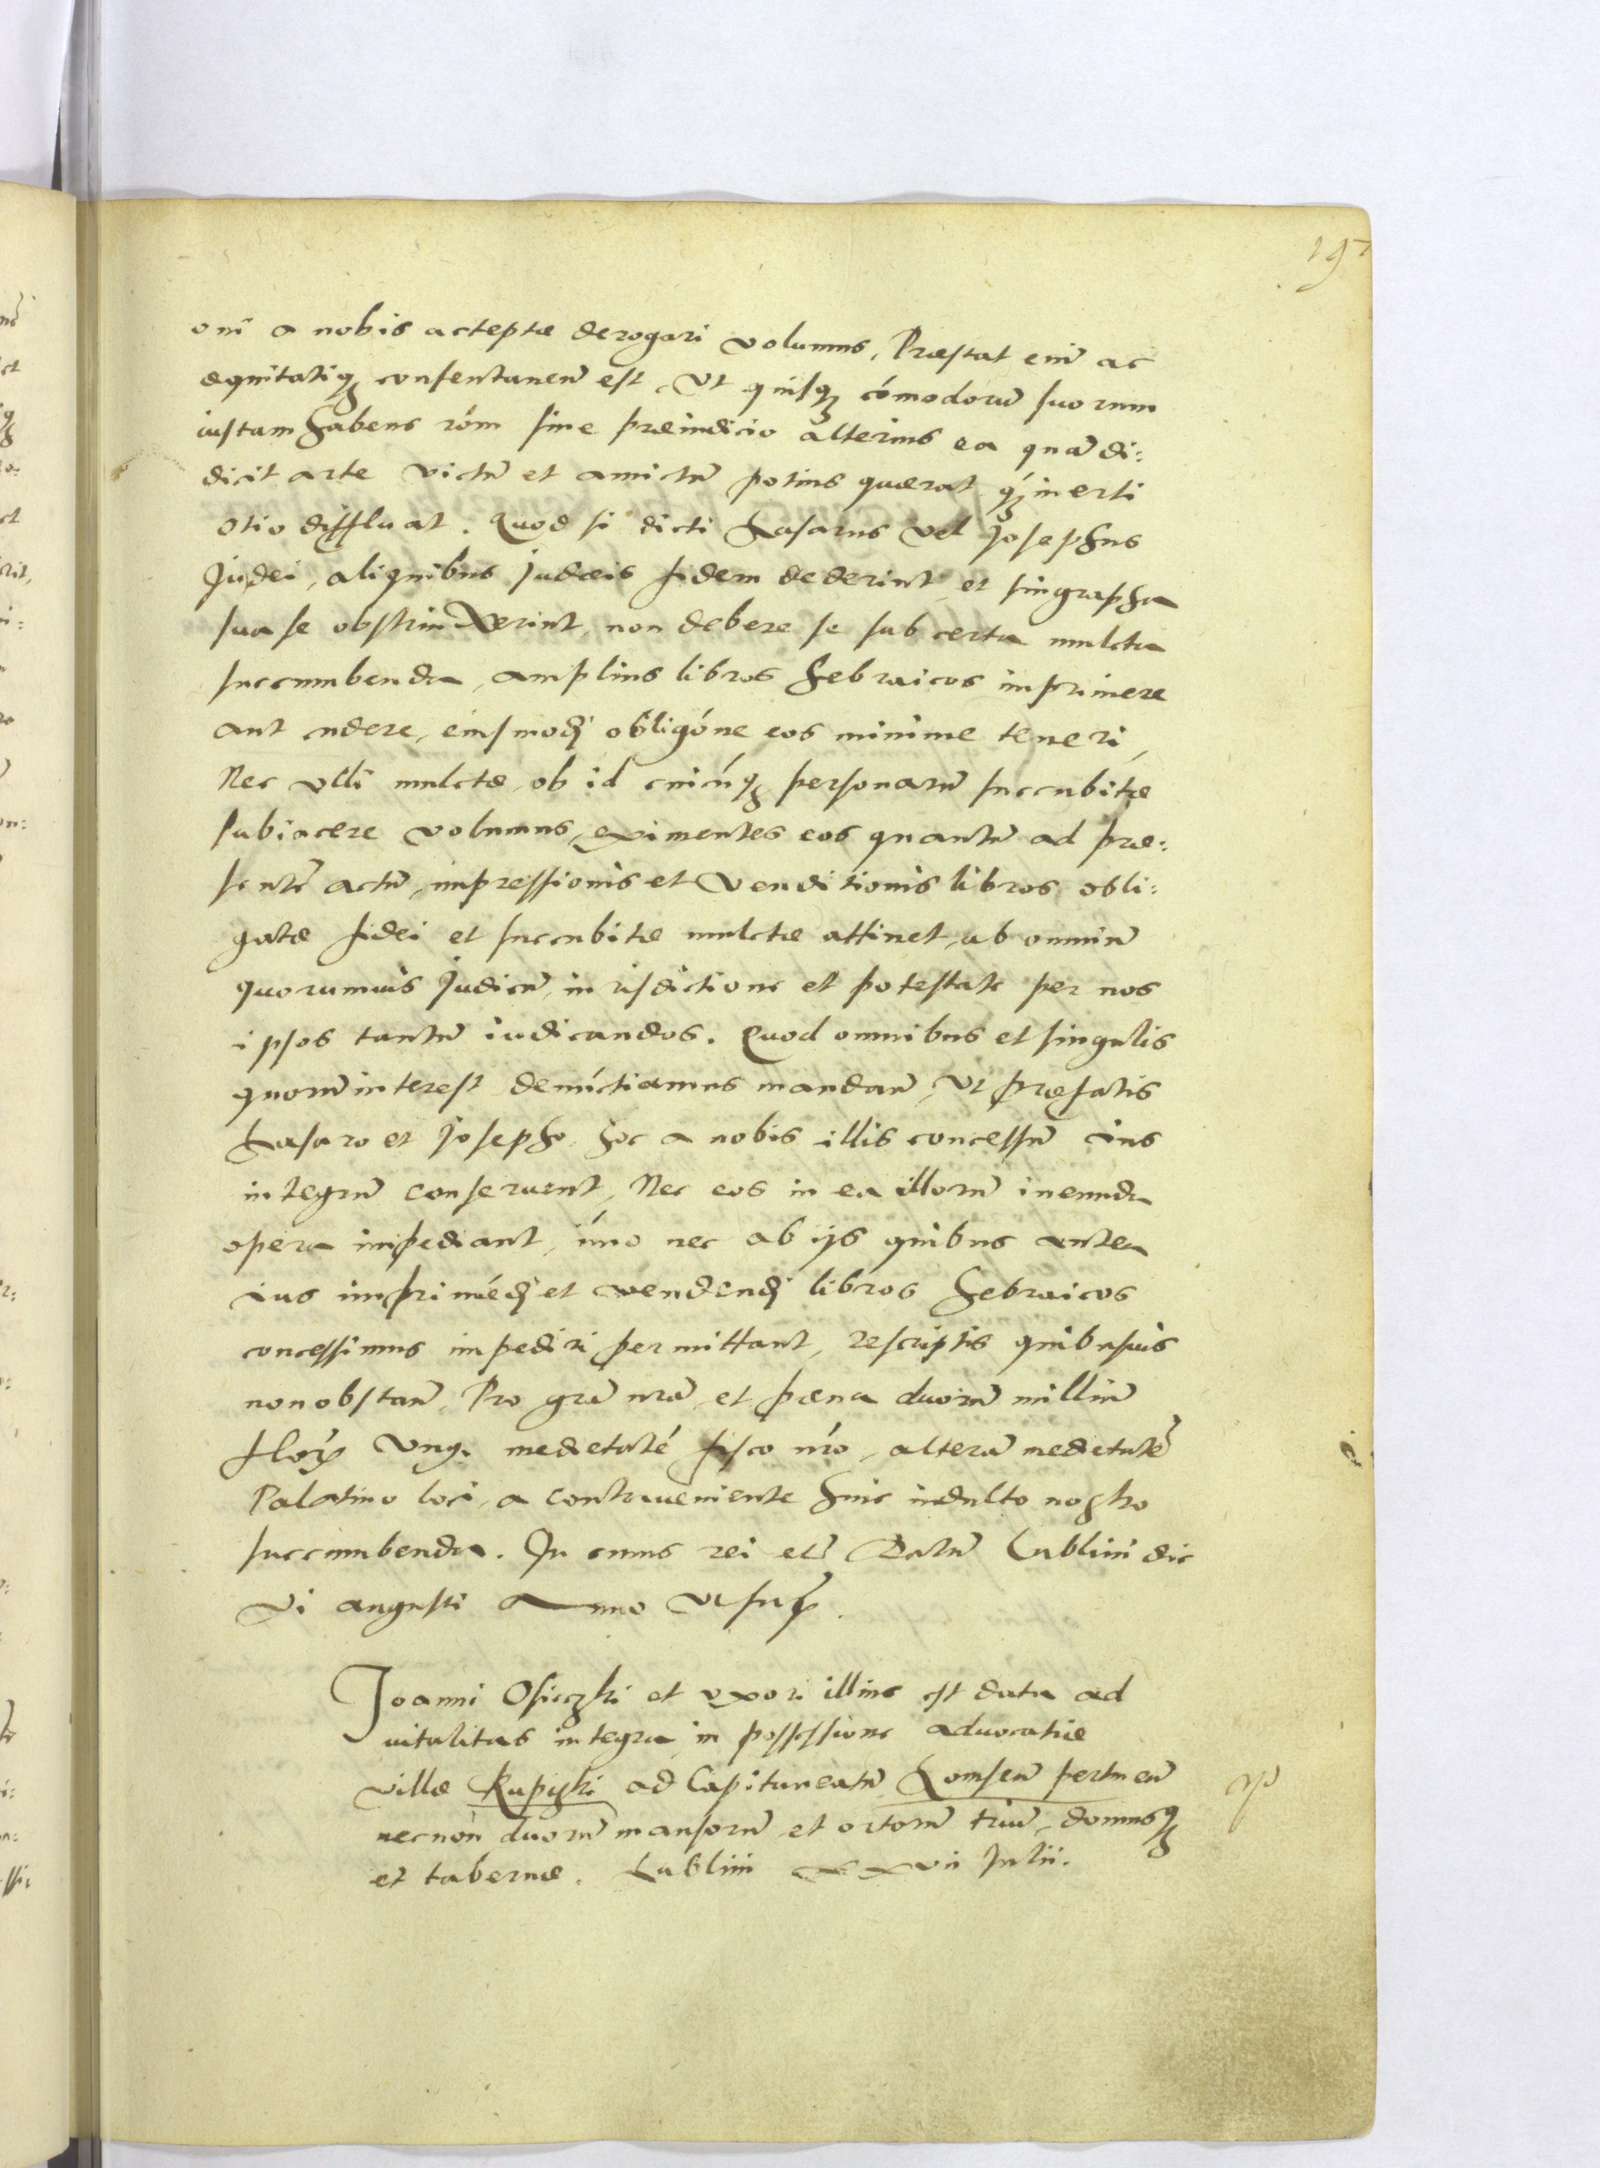 197
oni a nobis acceptæ derogari volumus, Præstat enim̄ ac
æquitatiqȝ consentaneū est, Vt quisqȝ cómodorū suorum
iustam habens róm sine præiudicio alterius ea quā di:
dicit arte victū et amictū potius quærat qȝ inerti
otio diffluat. Quod si dicti Lasarus vel Josephus
Judei, aliquibus Judæis fidem dederint et singrapha
sua se obstrinxerint, non debere se sub certa mulcta
succumbenda, amplius libros hebraicos imprimere
aut edere, eiusmodj obligóne eos minime teneri,
Nec vlli mulctæ, ob id cuicúqȝ personarū succubitæ
subiacere volumus, eximentes eos quantū ad præ:
sentē actū, impressionis et venditionis libros obli:
gatæ fidei et succubitæ mulctæ attinet, ab omniū
quorumuis Judicū, iurisdictione et potestate per nos
ipsos tantū iudicandos. Quod omnibus et singulis
quorū interest denúctiamus mandan̄, Vt præfatis
Lasaro et Josepho hoc a nobis illis concessū ius
integrū conseruent, Nec eos in ea illorū ineunda
opera impediant, imo nec ab ijs quibus antea
ius imprimédj et vendendj libros hebraicos
concessimus impediri permittant, rescriptis quibusuis
non obstan̄, Pro grā nrā et pæna duorū milliū
flor Vng. medietaté fisco nŕo, alterā medietatē
Palatino loci, a contraueniente huic indulto nostro
succumbenda. In cuius rei etc̄ Datū Lublini die
vi augusti Anno Vt supr.
Joanni Osieczki et vxori illius est data ad
uitalitas integra in possessione aduocatiæ
villæ Kupiski ad Capitaneatū Lomsen̄ pertinen̄
necnon duorū mansorū et ortorū triū, domusqȝ
et tabernæ. Lublini xxvii Julii.